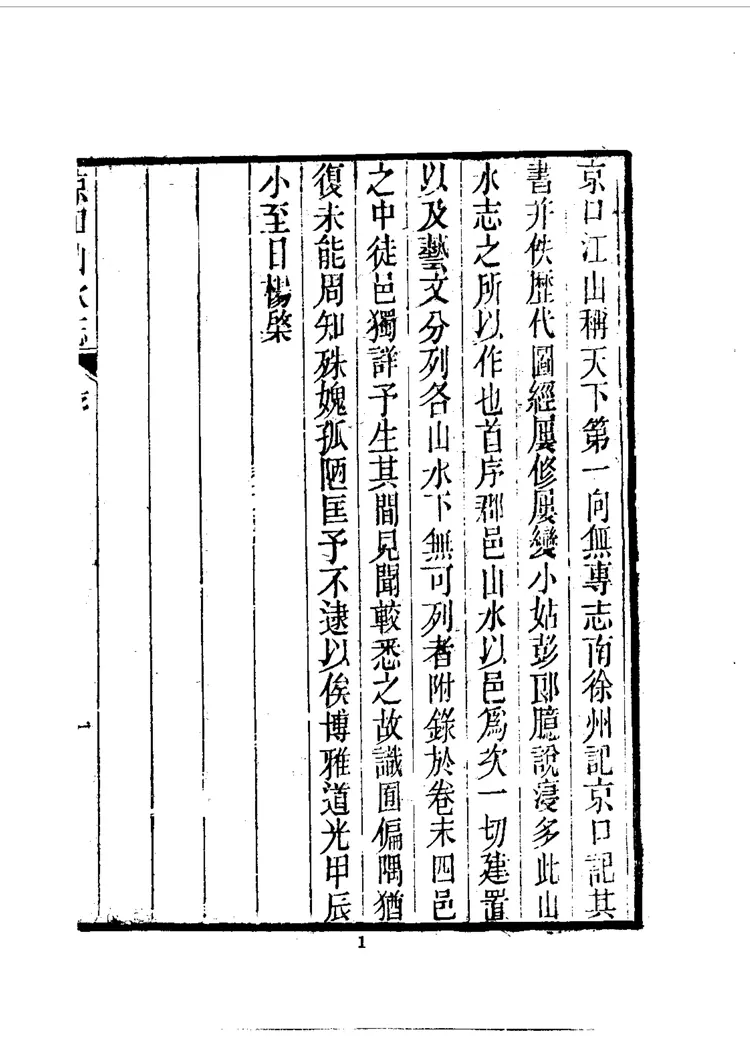 京口江山稱天下第一向無專志南徐州記京口記其
書并佚歷代圖經屢修屢變小姑彭郎臆說寖多此山
水志之所以作也首序郡邑山水以邑爲次一切建置
以及藝文分列各山水下無可列者附錄於卷末四邑
之中徒邑獨詳予生其間見聞較悉之故識囿偏隅猶
復未能周知殊媿孤陋匡予不逮以俟博雅道光甲辰
小至日楊棨
京口山水志
序
一
1